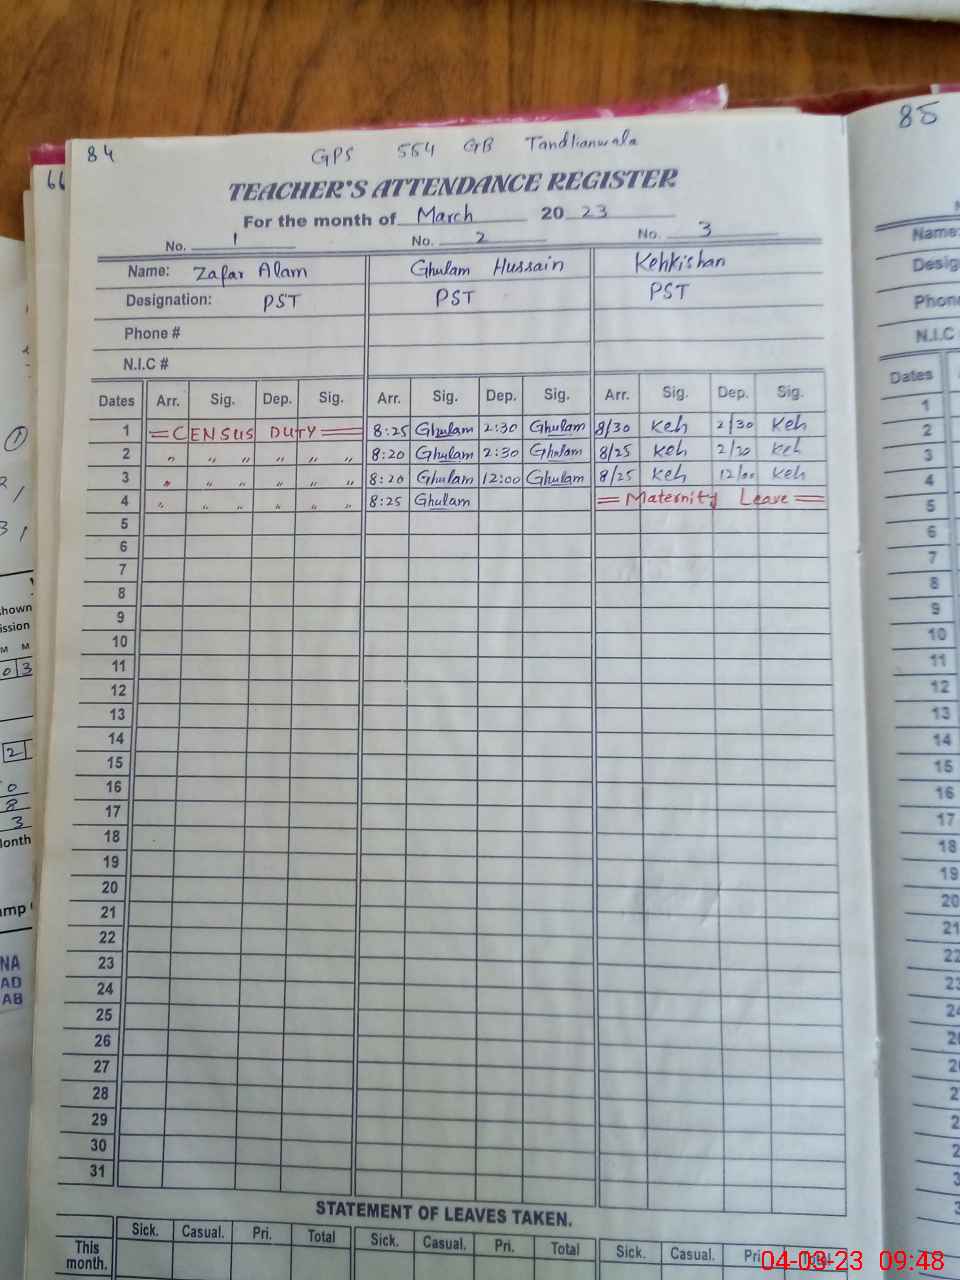 84
GPS 554 GB Tandlianwala
TEACHER'S ATTENDANCE REGISTER
For the month of March 2023
No. 1 No. 2 No. 3
Name: Zafar Alam Ghulam Hussain Kehkishan
Designation: PST PST PST
Phone #
N.I.C #
Dates Arr. Sig. Dep. Sig. Arr. Sig. Dep. Sig. Arr. Sig. Dep. Sig.
1 = CENSUS DUTY = 8:25 Ghulam 2:30 Ghulam 8/30 Keh 2/30 Keh
2 " " " " " " 8:20 Ghulam 2:30 Ghulam 8/25 Keh 2/30 Keh
3 " " " " " " 8:20 Ghulam 12:00 Ghulam 8/25 Keh 12/00 Keh
4 " " " " " " 8:25 Ghulam = Maternity Leave =
5
6
7
8
9
10
11
12
13
14
15
16
17
18
19
20
21
22
23
24
25
26
27
28
29
30
31
STATEMENT OF LEAVES TAKEN.
Sick. Casual. Pri. Total Sick. Casual. Pri. Total Sick. Casual. Pri. Total
This month.
85
Name:
N.I.C
Dates
1
2
3
4
5
6
7
8
9
10
11
12
13
14
15
16
17
18
19
20
21
22
23
66
shown
ission
M M
03
2
0
8
3
NA
AD
AB
04-03-23 09:48